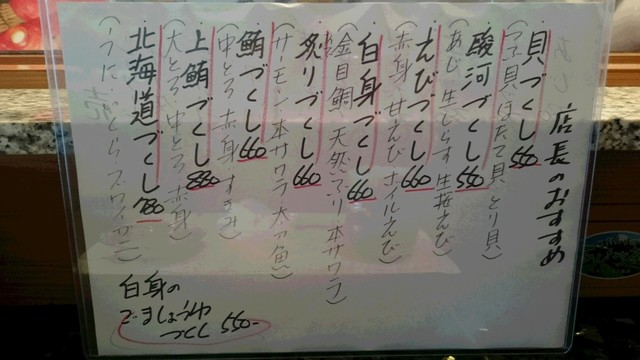 店長のおすすめ
・貝づくし 550
(つぶ貝 ほたて貝 とり貝)
・駿河づくし 550
(あじ 生しらす 生桜えび)
・えびづくし 660
(赤身 甘えび ボイルえび)
・白身づくし 660
(金目鯛 天然ぶり 本サワラ)
・炙りづくし 660
(サーモン 本サワラ 太刀魚)
・鮪づくし 660
(中とろ 赤身 すきみ)
・上鮪づくし 880
(大とろ 中とろ 赤身)
・北海道づくし 780
(うに いくら ズワイガニ)
白身の
ごましょうゆ
づくし 550-